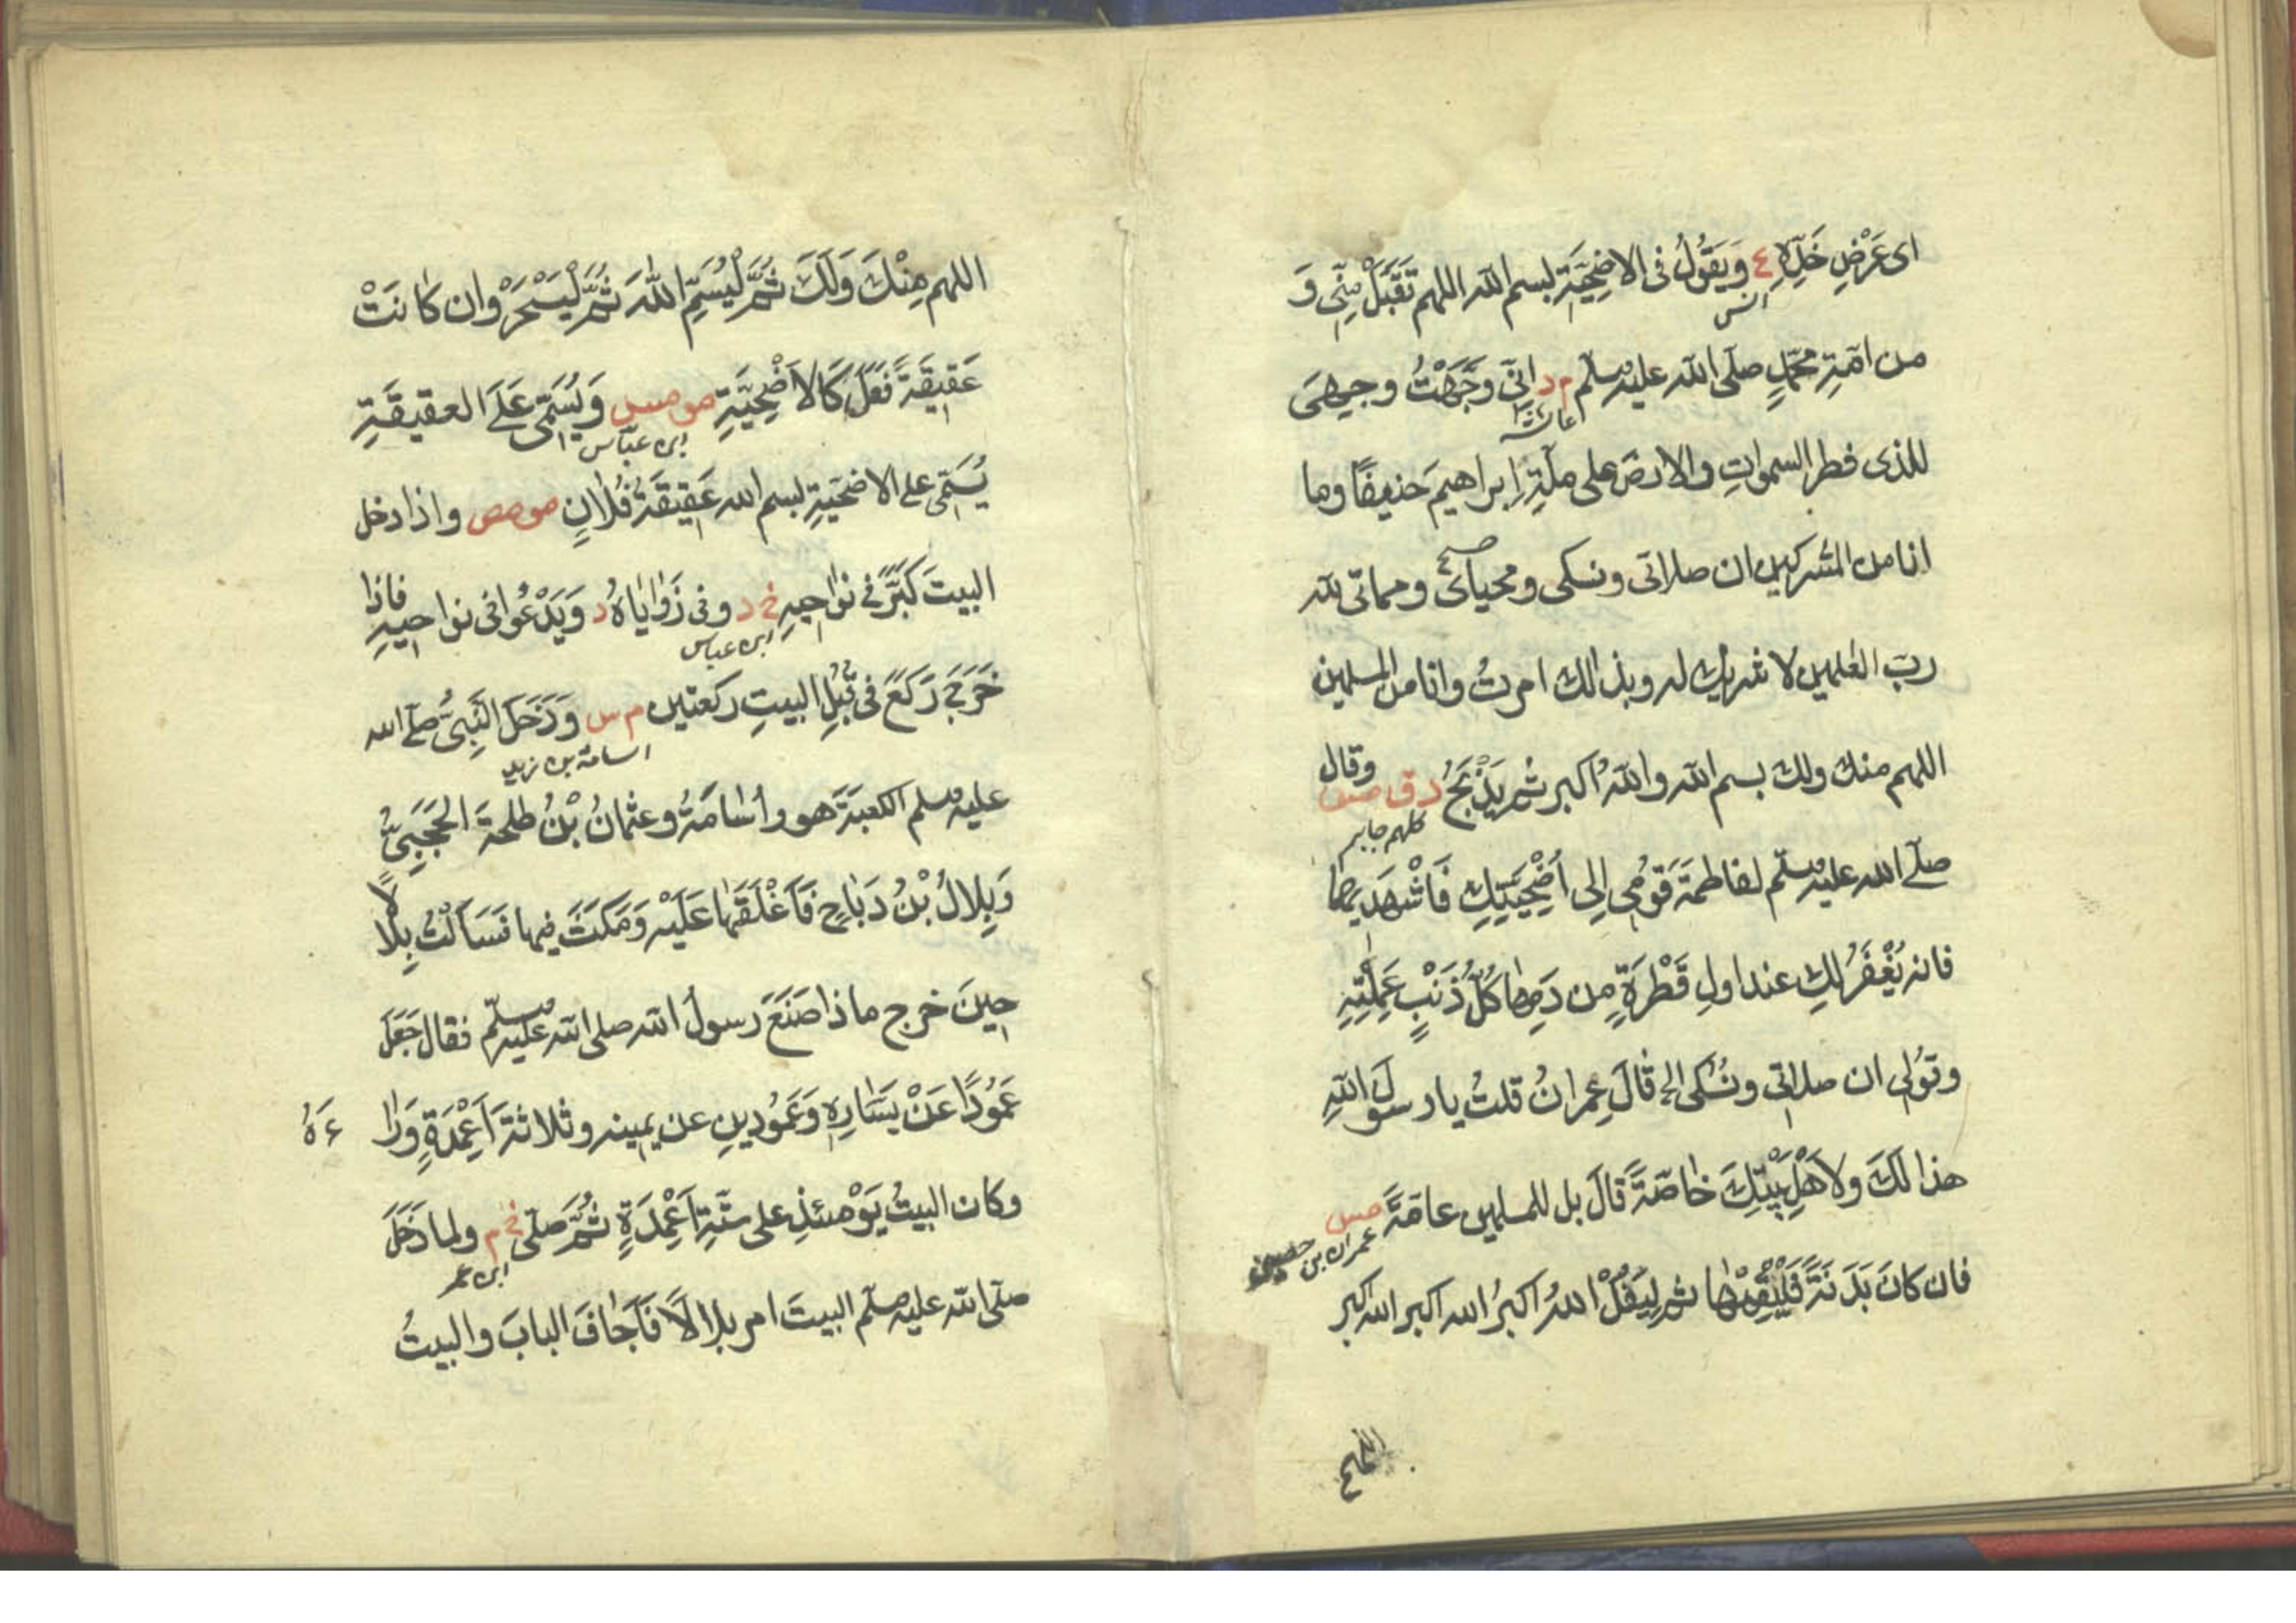 اى عَرْضِ خَدِّهٖ ع وَيَقُولُ فى الاضحِيَّةِ بسم الله اللهم تَقَبَّلْ مِنِّى وَ
انس
من امّةِ محمّدٍ صلى الله عليه وسلم م د انّى وجّهْتُ وجهىَ
عائشة
للذى فطر السموات والارضَ على ملّةِ ابراهيمَ حنيفًا وما
انا من المشركين ان صلاتى ونسكى ومحياى ومماتى لله
صح
ربّ العٰلمين لا شريك له وبذالك امرتُ وانا من المسلمين
اللهم منك ولك بسم الله والله اكبر ثم يَذْبَحُ د ق مس وقال
كلهم جابر
صلى الله عليه وسلم لفاطمةَ قَوْمِى اِلى اُضْحِيَتِكِ فَاشْهَدِيهَا
فانه يُغْفَرُ لكِ عند اولِ قَطْرَةٍ من دَمِهَا كُلُّ ذَنْبٍ عَمِلْتِيْهِ
وقُولى ان صلاتى ونُسُكى الخ قَالَ عِمرانُ قلتُ يا رسولَ اللهِ
هذا لَكَ ولاَهْلِ بَيْتِكَ خَاصَّةً قالَ بل للمسلمين عامّةً مس
عمران بن حصين
فان كانَ بَدَنَةً فَلْيُقِمْهَا ثم لِيَقُلْ اللهُ اكبرُ الله اكبر الله اكبر
اللهم
اللهم مِنْكَ وَلَكَ ثُمَّ لْيُسَمِّ اللهَ ثُمَّ لْيَنْحَرْ وان كانَتْ
عَقِيقَةً فَعَلَ كَالاُضْحِيَّةِ مو مس وَيُسَمِّى عَلَى العقيقَةِ
ابن عباس
يُسَمِّى على الاضحيَةِ بسم الله عَقِيقَةُ فُلَانٍ مو مص واذا دخل
البيتَ كَبَّرَ فى نواحيهِ خ د وفى زَوَايَاهُ د وَيَدْعُوا فى نواحيهِ فاذا
ابن عباس
خَرَجَ رَكَعَ فى قُبُلِ البيتِ ركعتين م س وَدَخَلَ النَّبِىُّ صلى الله
اسامة بن زيد
عليه وسلم الكعبَةَ هو واُسَامَةُ وعثمانُ بْنُ طلحةَ الحَجَبِىُّ
وَبِلالُ بْنُ رَبَاحٍ فَاَغْلَقَهَا عَلَيْهِ وَمَكَثَ فيها فَسَاَلْتُ بِلَالًا
حِينَ خرج ماذا صَنَعَ رسولُ الله صلى الله عليه وسلم فقال جَعَلَ
عَمُودًا عَنْ يَسَارِهِ وَعَمُودينِ عن يمينه وثلاثةَ اَعْمِدَةٍ وَرَا ءَهُ
وكان البيتُ يَوْمئذٍ على ستّةِ اَعْمِدَةٍ ثُمَّ صَلَّى خ م ولما دَخَلَ
ابن عمر
صلى الله عليه وسلم البيتَ امر بلالًا فَاَجَافَ البابَ والبيتُ